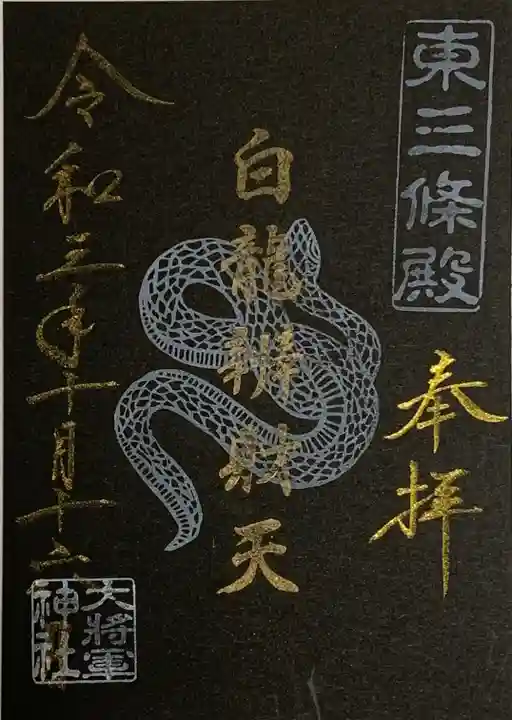 東三條殿
奉拝
白龍辨財天
令和三年十月十六日
大将軍
神社